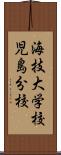 海技大学校
児島分校